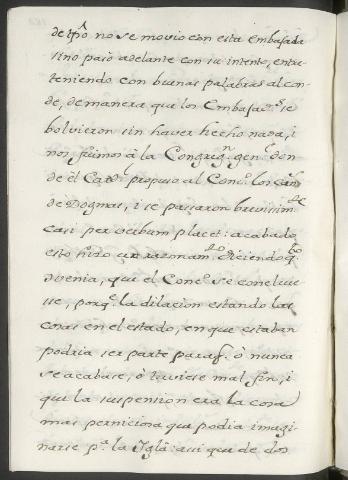 de tpõ. no se movio con esta embajada
sino pasò adelante con su intento, entre
teniendo con buenas palabras al con-
de, de manera que los Embajad.es se
bolvieron sin haver hecho nada, i
nos fuimos à la Congreg.n gen.l don
de el Card.l propuso al Conc.o los can.s
de Dogmas, i se pasaron brevisim.te
casi per verbum placet: acabado
esto hizo un razonam.to diciendo q.to
convenia, que el Conc.o se concluie
se, porq.e la dilacion estando las
cosas en el estado, en que estaban
podria ser parte para q. ò nunca
se acabase, ò tuviese mal fin, i
que la suspension era la cosa
mas perniciosa que podia imagi-
narse p.a la Igl.a: asi que de dos